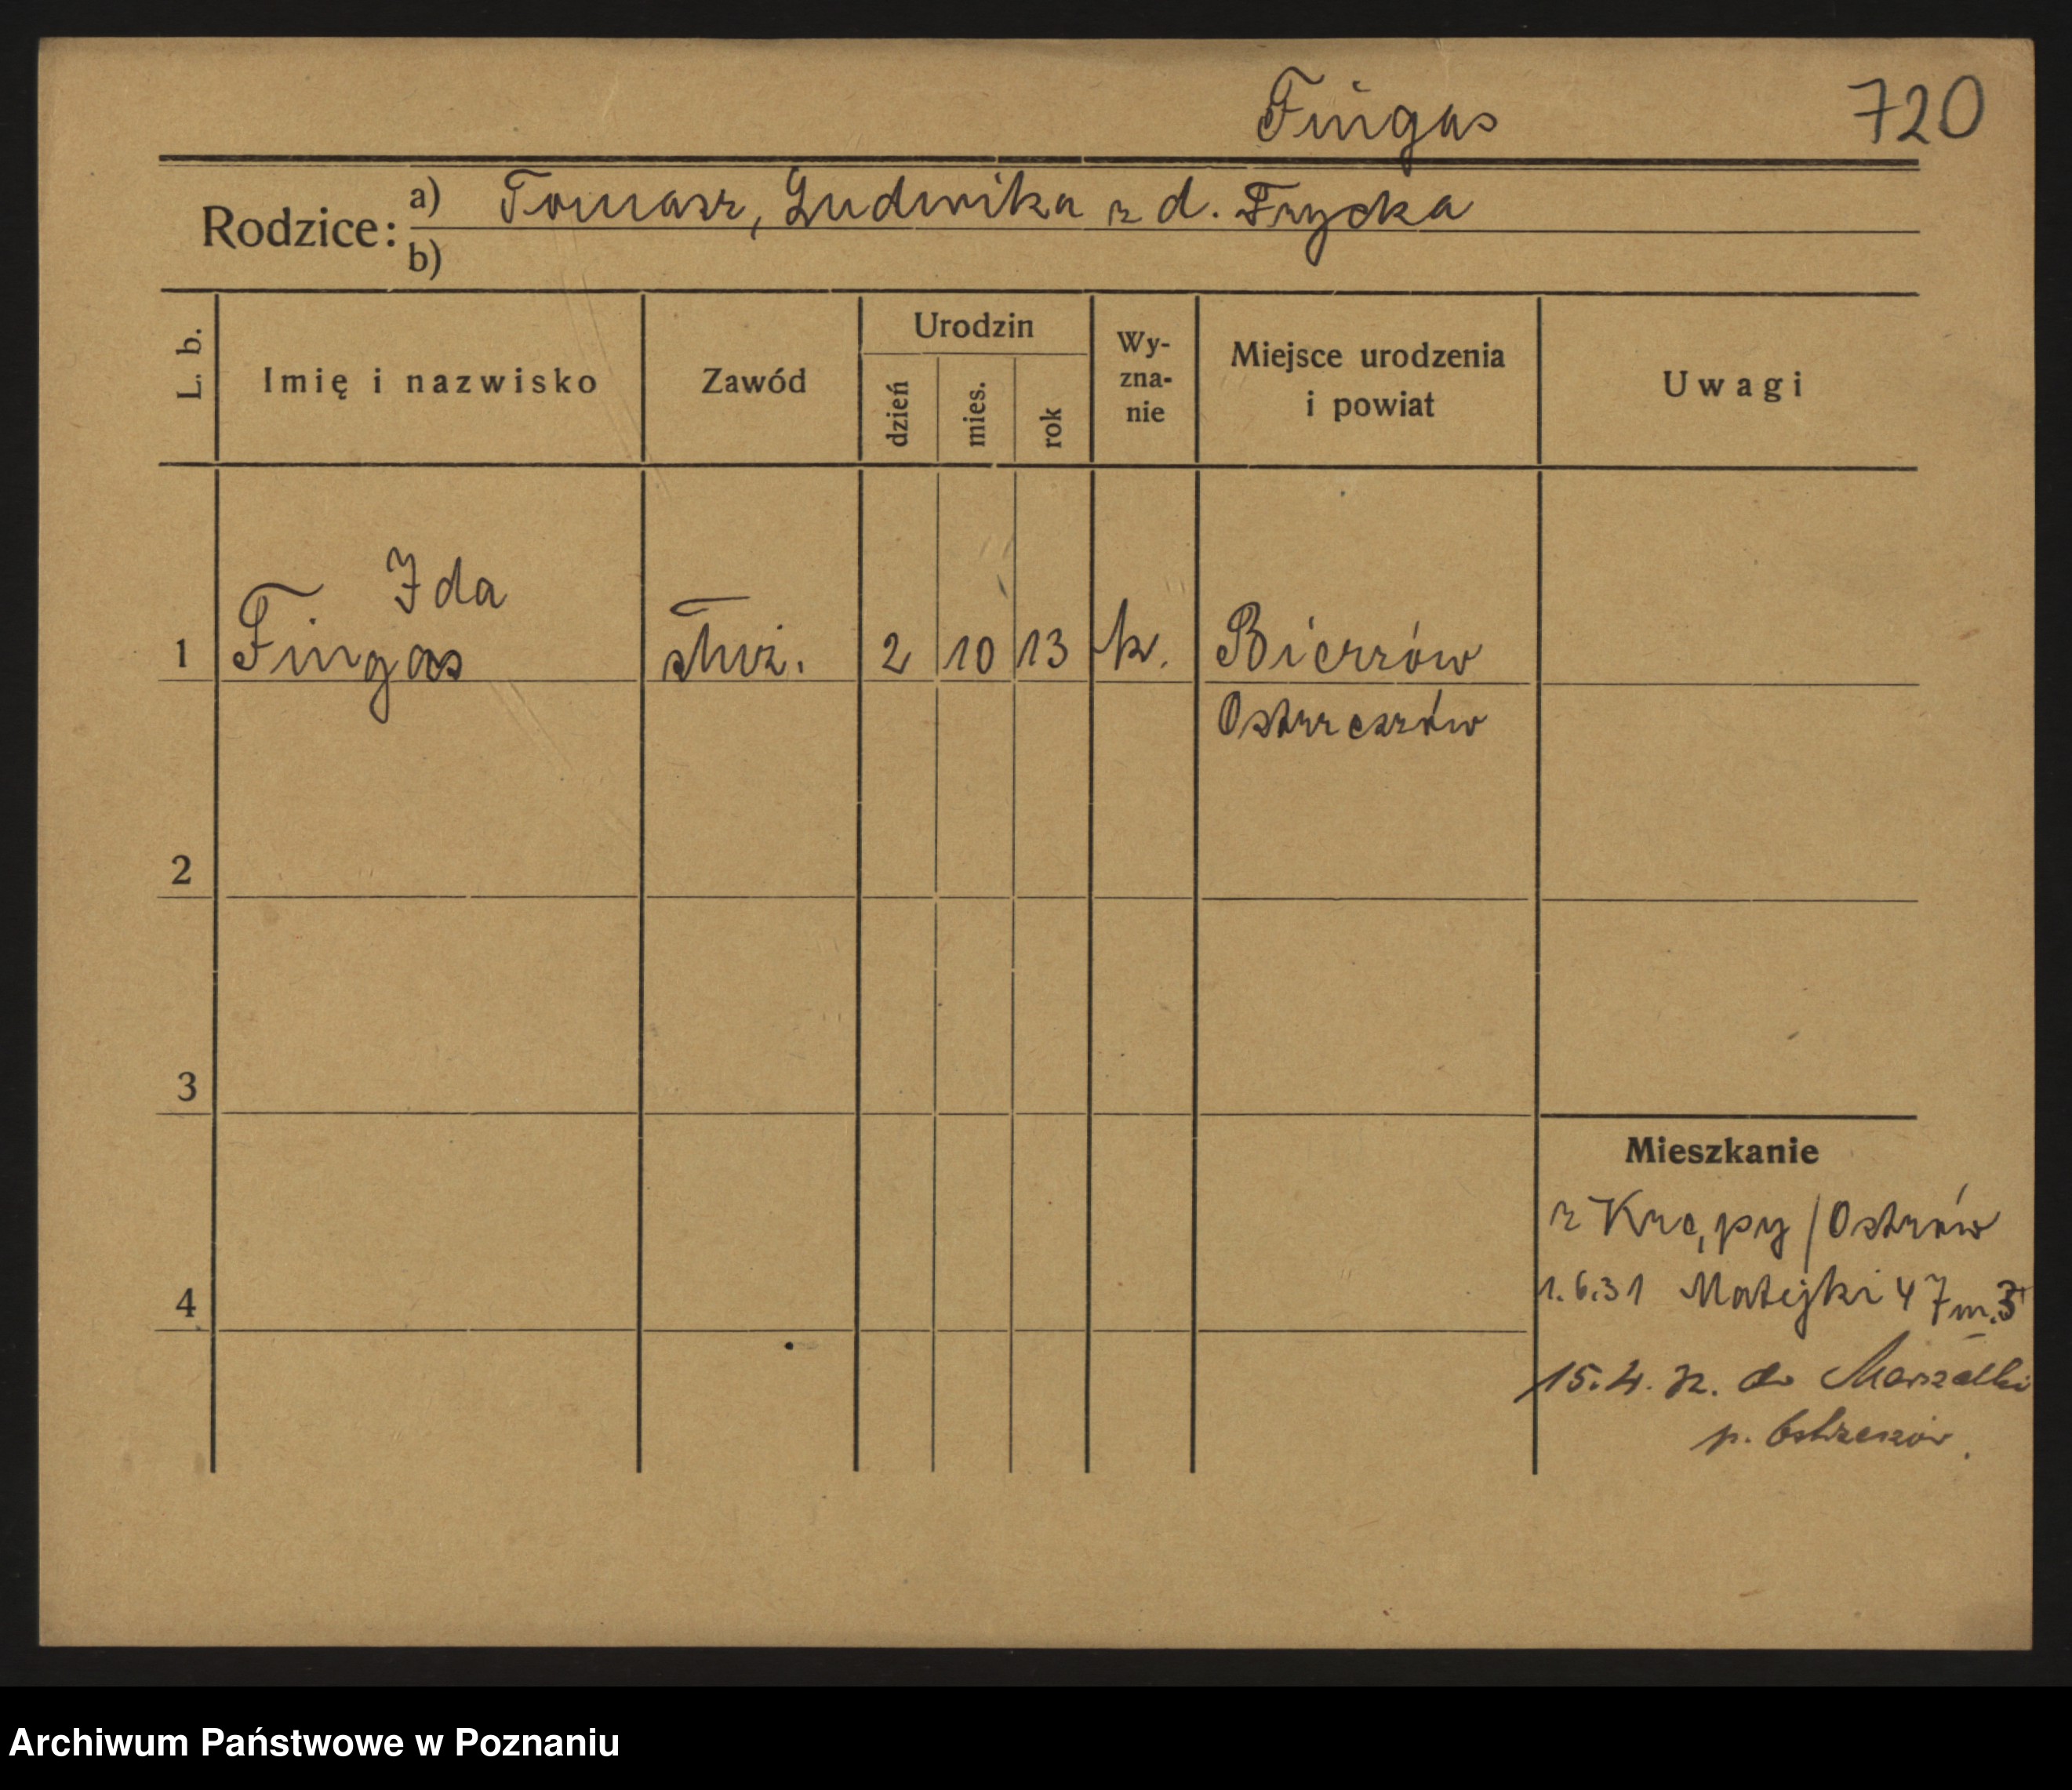 Fingas 720
Rodzice: a) Tomasz, Ludwika z d. Frycka
b)
L. b. Imię i nazwisko Zawód Urodzin dzień mies. rok Wy-zna-nie Miejsce urodzenia i powiat Uwagi
Ida
1 Fingas służ. 2 10 13 k. Bierzów
Ostrzeszów
2
3
Mieszkanie
z Krępy / Ostrów
1.6.31 Matejki 47 m. 3
4
15.4. 32. do Marszałki
p. Ostrzeszów.
Archiwum Państwowe w Poznaniu